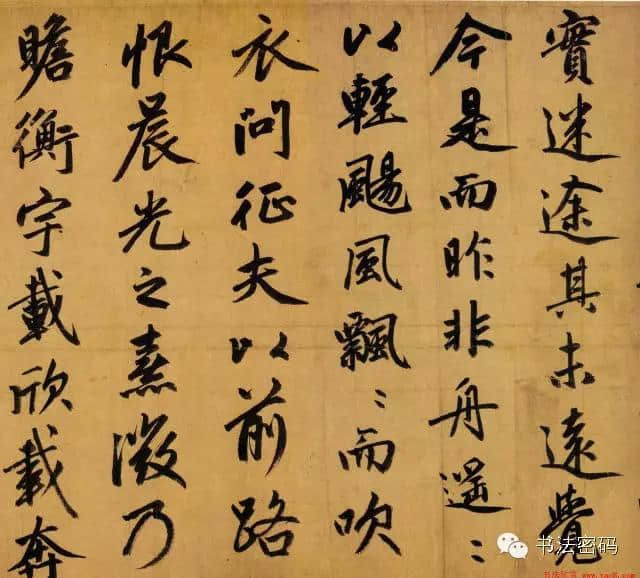 實迷途其未遠覺
今是而昨非舟遥〻
以輕颺風飄〻而吹
衣問征夫以前路
恨晨光之熹微乃
瞻衡宇載欣載奔
书法密码